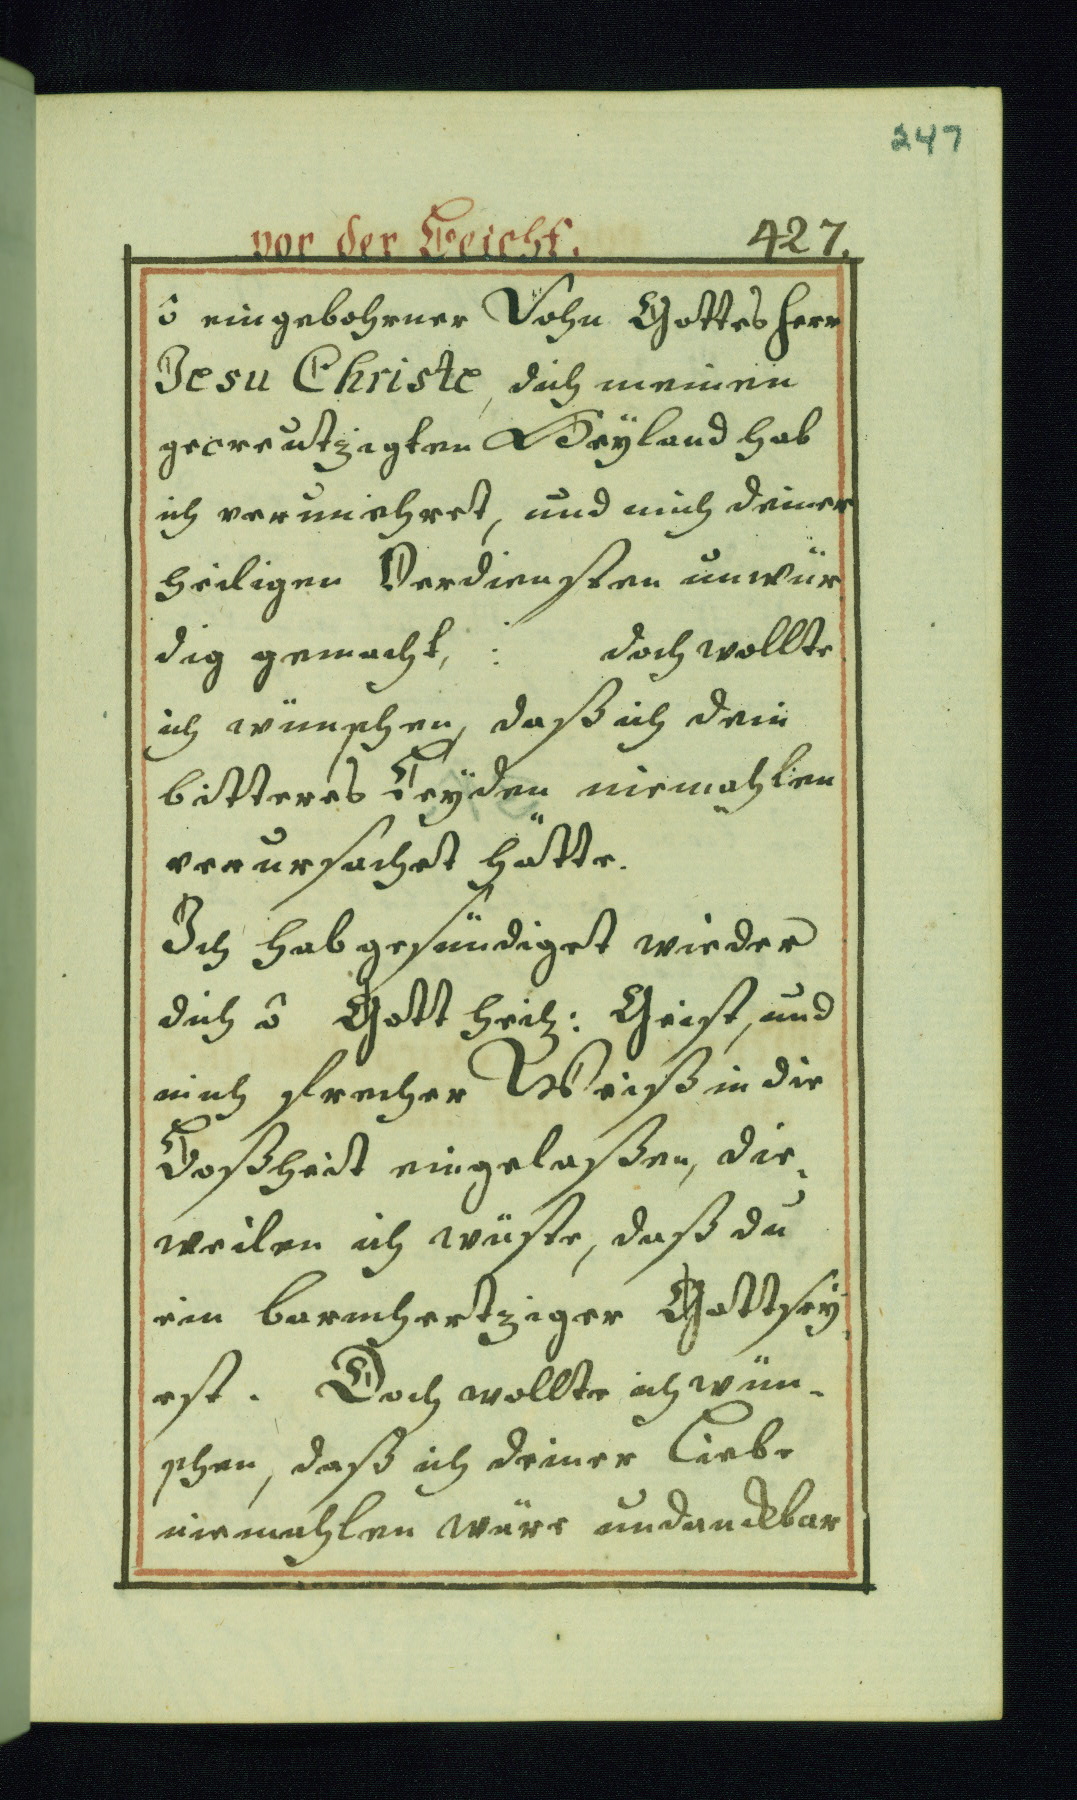 247
vor der Beicht. 427.
ô eingebohrner Sohn Gottes Herr
Jesu Christe, dich meinen
gecreutzigten Heÿland hab
ich verunehret, und mich deiner
heiligen Verdiensten unwür
dig gemacht, : doch wollte
ich wünschen, daß ich dein
bitteres Leÿden niemahlen
verursachet hätte.
Ich hab gesündiget wieder
dich ô Gott heilg: Geist, und
mich frecher Weiß in die
Boßheit eingelaßen, die-
weilen ich wüste, daß du
ein barmhertziger Gott seÿ-
est. Doch wollte ich wün-
schen, daß ich deiner Liebe
niemahlen wäre undanckbar